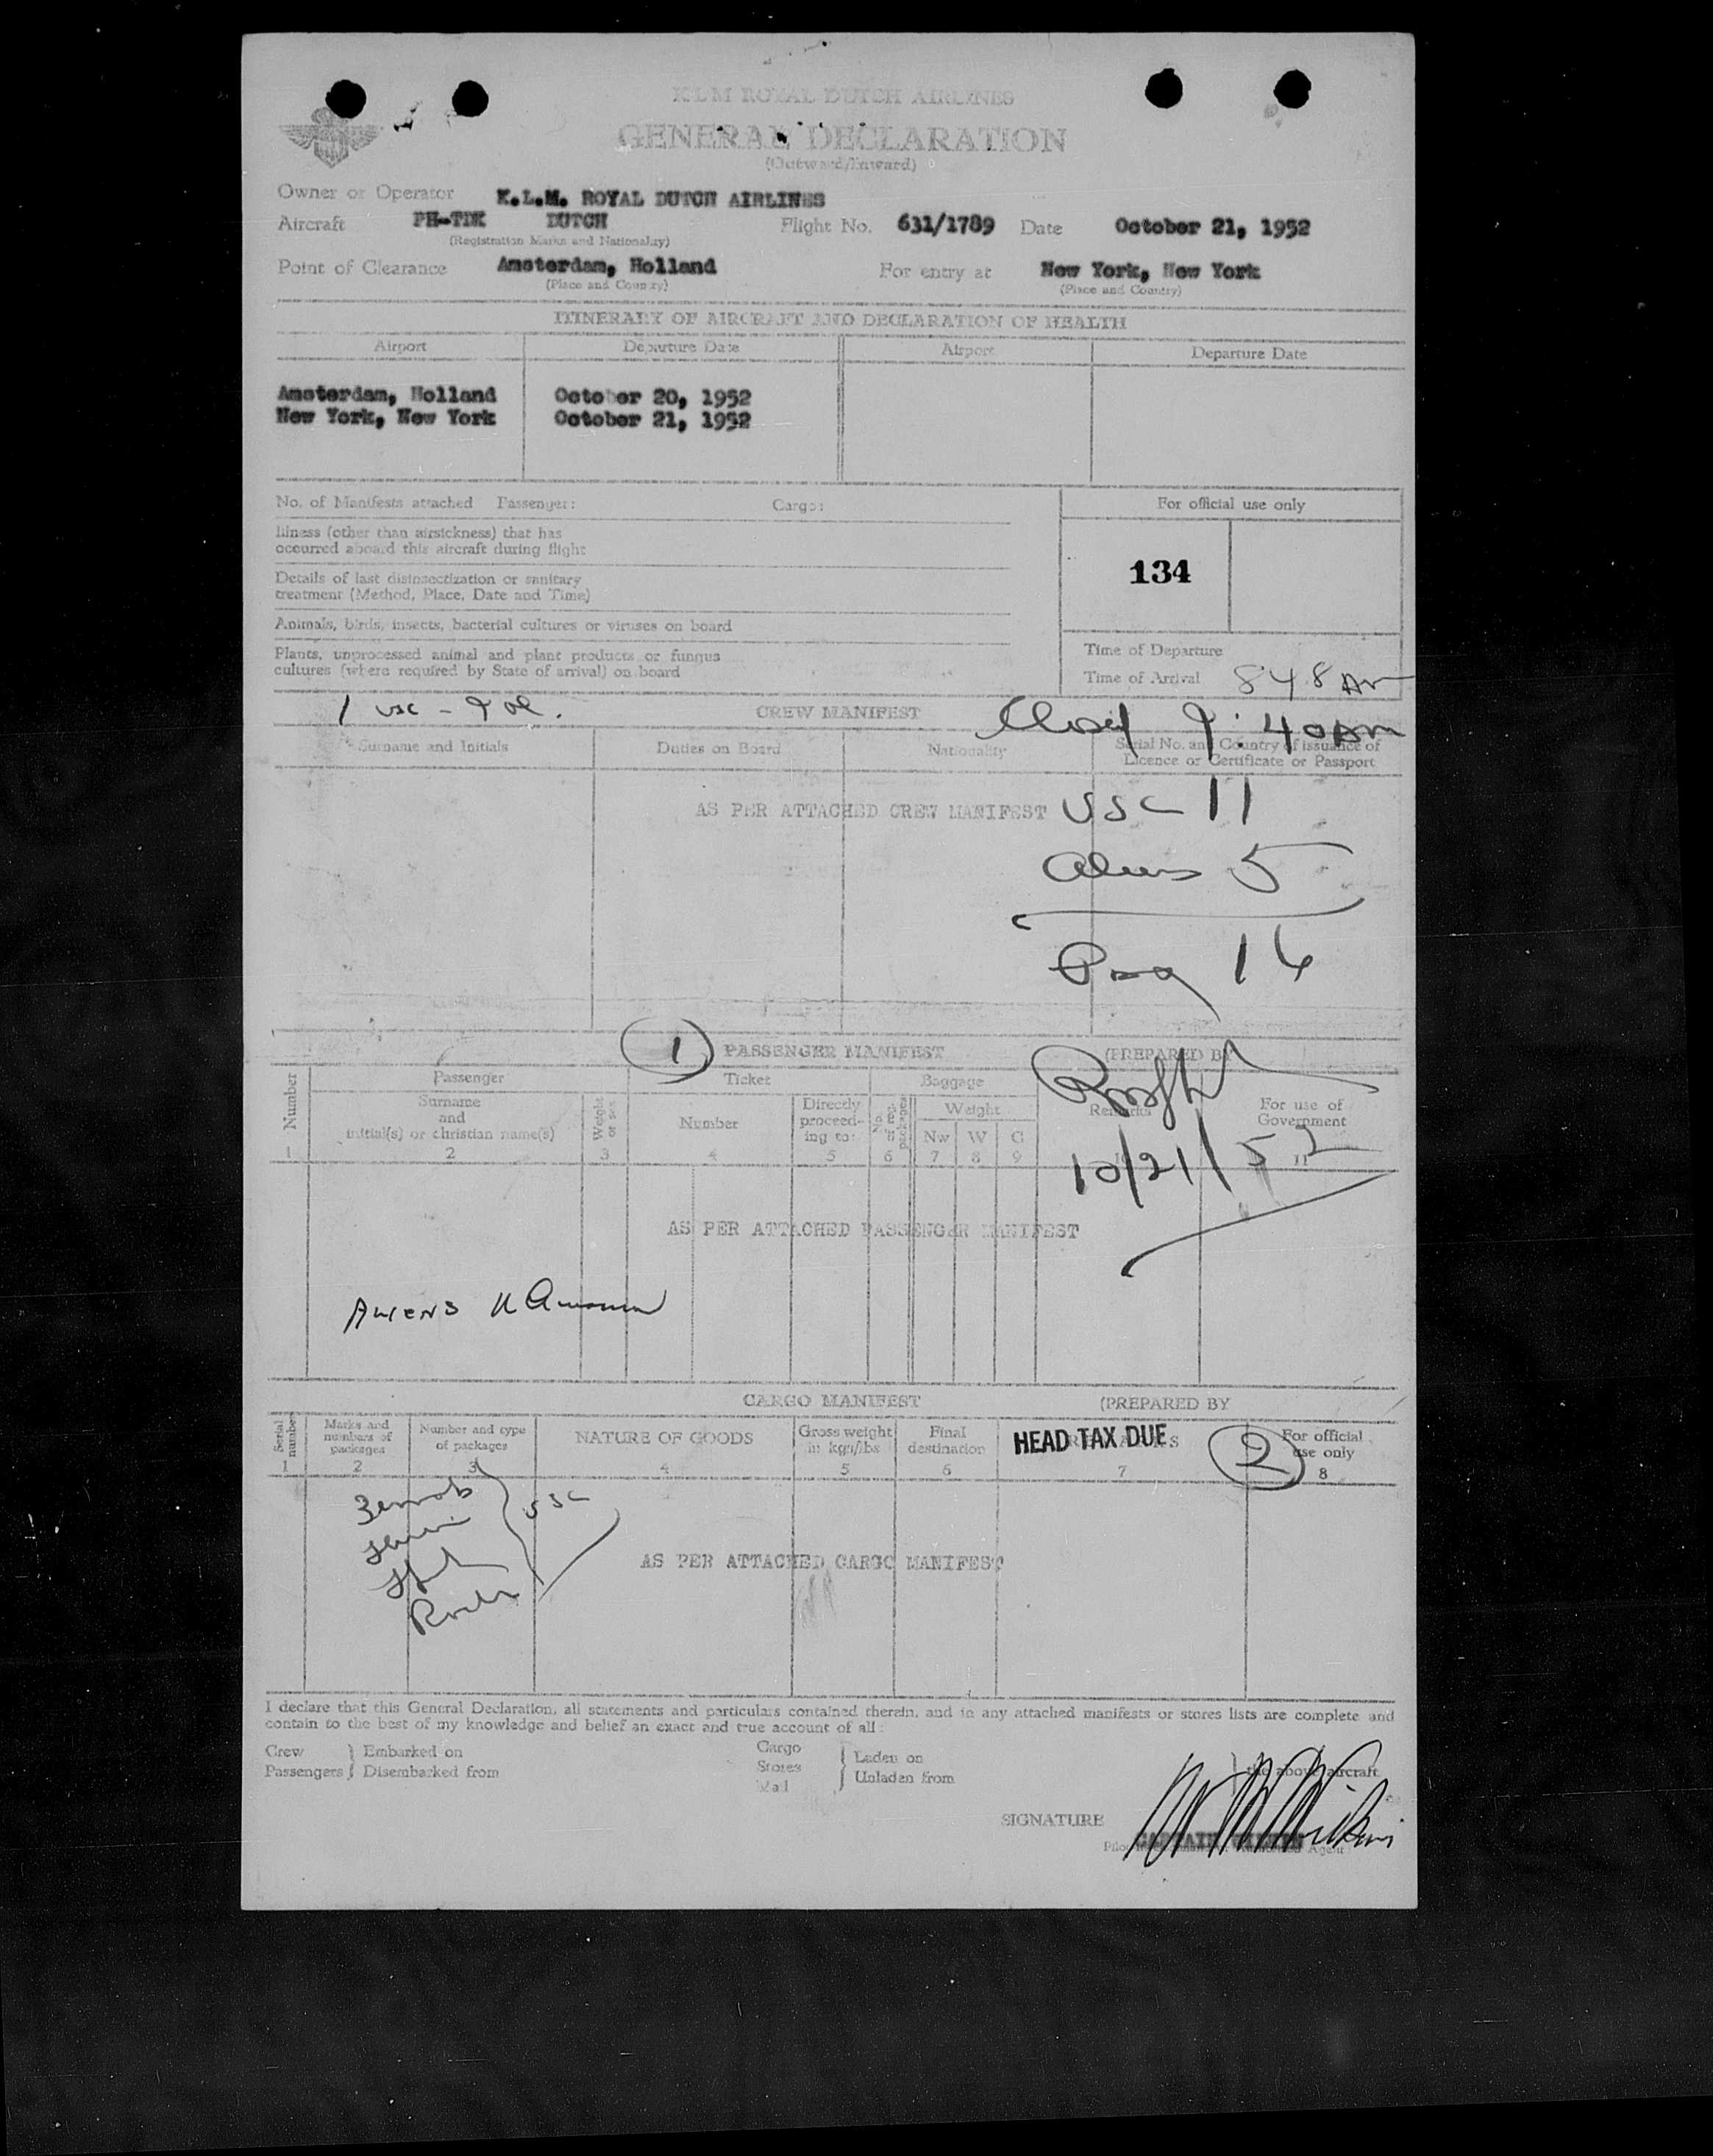 K·L·M ROYAL DUTCH AIRLINES
GENERAL DECLARATION
(Outward/Inward)
Owner or Operator K.L.M. ROYAL DUTCH AIRLINES
Aircraft PH-TDK DUTCH Flight No. 631/1789 Date October 21, 1952
(Registration Marks and Nationality)
Point of Clearance Amsterdam, Holland For entry at New York, New York
(Place and Country) (Place and Country)
ITINERARY OF AIRCRAFT AND DECLARATION OF HEALTH
Airport Departure Date Airport Departure Date
Amsterdam, Holland October 20, 1952
New York, New York October 21, 1952
No. of Manifests attached Passenger: Cargo: For official use only
Illness (other than airsickness) that has
occurred aboard this aircraft during flight
134
Details of last disinsectization or sanitary
treatment (Method, Place, Date and Time)
Animals, birds, insects, bacterial cultures or viruses on board
Plants, unprocessed animal and plant products or fungus
cultures (where required by State of arrival) on board
Time of Departure
Time of Arrival 848 AM
1 usc - 9
CREW MANIFEST
9:40 am
Surname and Initials Duties on Board Nationality Serial No. and Country of issuance of
Licence or Certificate or Passport
AS PER ATTACHED CREW MANIFEST
USC 11
Aliens 5
16
1 PASSENGER MANIFEST (PREPARED BY
Number Passenger Ticket Baggage
Surname
and
initial(s) or christian name(s)
Weight or sex
Number Directly
proceed-
ing to:
No. of reg. packages
Weight Remarks For use of
Government
Nw W C
1 2 3 4 5 6 7 8 9 11
10/21/52
AS PER ATTACHED PASSENGER MANIFEST
CARGO MANIFEST (PREPARED BY
Serial number
Marks and
numbers of
packages
Number and type
of packages
NATURE OF GOODS
Gross weight
in kgs/lbs
Final
destination
REMARKS
HEAD TAX DUE 2
For official
use only
1 2 3 4 5 6 7 8
USC
AS PER ATTACHED CARGO MANIFEST
I declare that this General Declaration, all statements and particulars contained therein, and in any attached manifests or stores lists are complete and
contain to the best of my knowledge and belief an exact and true account of all:
Crew Passengers } Embarked on Disembarked from
Cargo Stores Mail } Laden on Unladen from
} the above aircraft
SIGNATURE
CAPTAIN